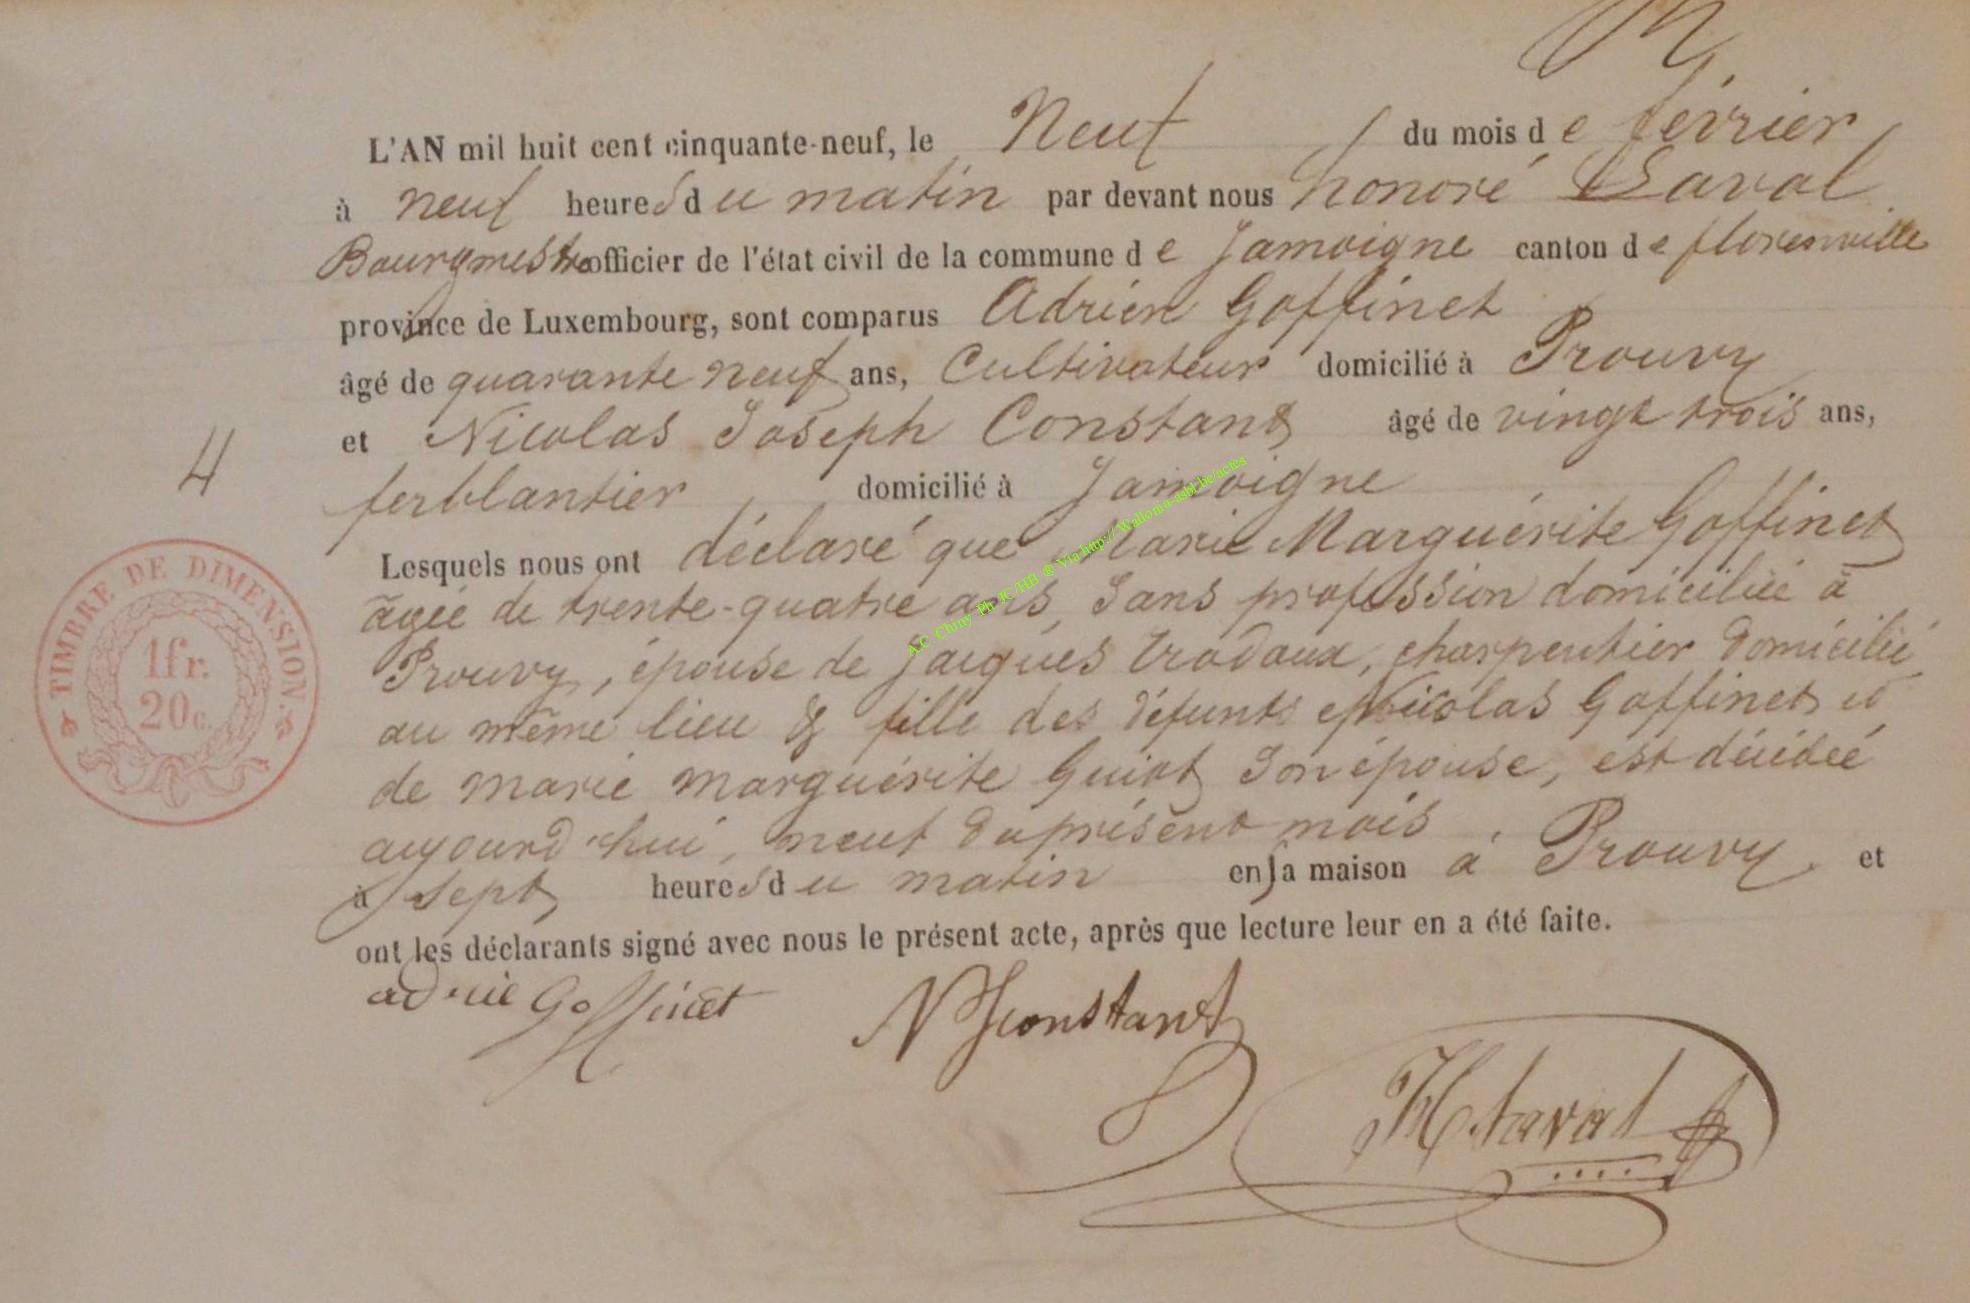 L'AN mil huit cent cinquante-neuf, le Neuf du mois de février
à neuf heures du matin par devant nous honoré Laval
Bourgmestre officier de l'état civil de la commune de Jamoigne canton de florenville
province de Luxembourg, sont comparus Adrien Goffinet
âgé de quarante neuf ans, Cultivateur domicilié à Prouvy
et Nicolas Joseph Constant âgé de vingt trois ans,
4
ferblantier domicilié à Jamoigne
Lesquels nous ont déclaré que Marie Marguérite Goffinet
âgée de trente-quatre ans, sans profession domiciliée à
Prouvy, épouse de Jacques trodoux, charpentier domicilié
au même lieu & fille des défunts Nicolas Goffinet et
de marie marguérite Guiot son épouse, est décédée
aujourd'hui, neuf du présent mois
à sept heures du matin en sa maison à Prouvy. et
ont les déclarants signé avec nous le présent acte, après que lecture leur en a été faite.
adrie Goffinet NJConstant
H Laval
TIMBRE DE DIMENSION.
1fr.
20c.
A.C Chiny Ph JC/HB @ Via http://Wallonia-asbl.be/actes